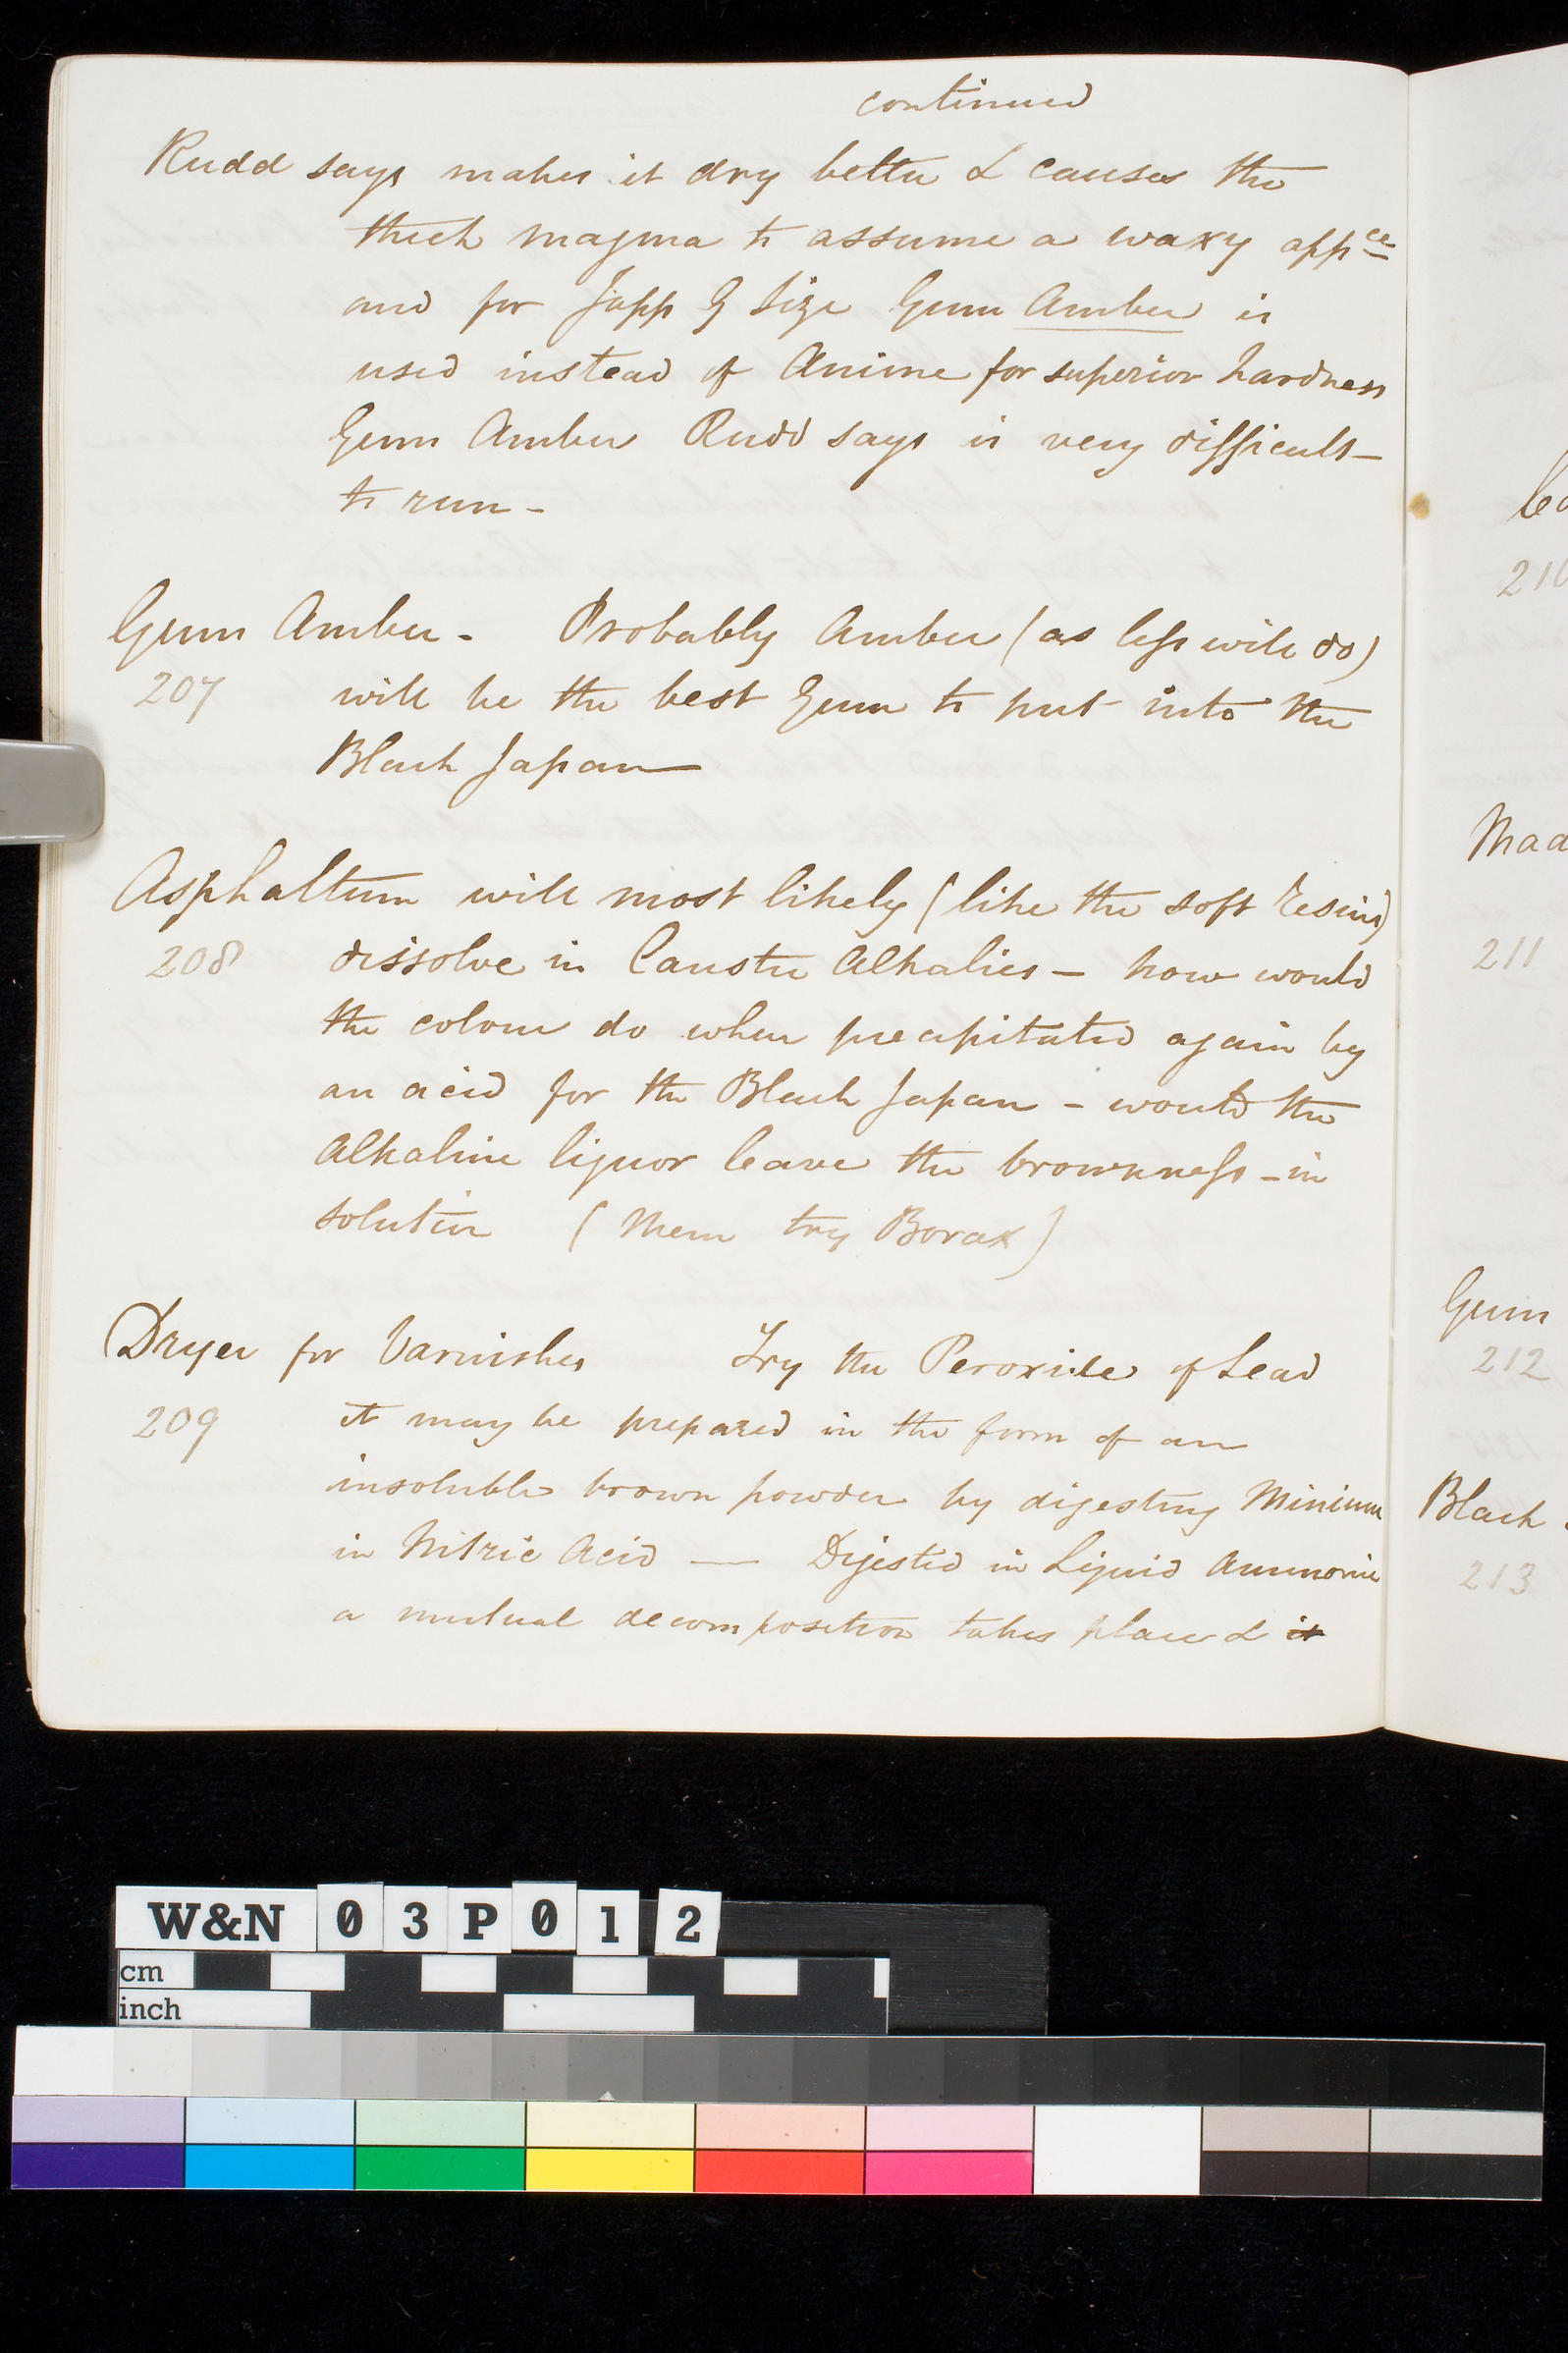 continued
Rudd says makes it dry better & causes the
thick magma to assume a waxy appce
and for Japp G Size Gum Amber is
used instead of Anime for superior hardness
Gum Amber Rudd says is very difficult
to run -
Gum Amber - Probably Amber (as less will do)
207 will be the best Gum to put into the
Black Japan
Asphaltum will most likely (like the soft Resins)
208 dissolve in Caustic Alkalies - how would
the colour do when precipitated again by
an acid for the Black Japan - would the
Alkaline liquor leave the brownness - in
solution (Mem try Borax)
Dryer for Varnishes Try the Peroxide of Lead
209 it may be prepared in the form of an
insoluble brown powder by digesting Minium
in Nitric Acid — Digested in Liquid Ammonia
a mutual decomposition takes place & it
210
Mad
211
Gum
212
Black
213
W&N 03P012
cm
inch